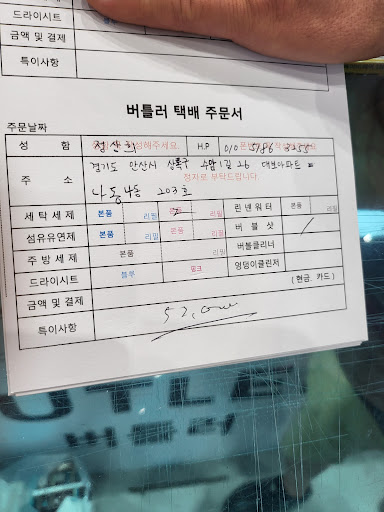 드라이시트
금액 및 결제
특이사항
버틀러 택배 주문서
주문날짜
성 함 정산희 성해주세요. H.P 010
주 소 경기도 안산시 상록구 수암1길 26 대보아파트
정자로 부탁드립니다
나동 203호
세탁세제 본품 리필 본품 리필 린넨워터 본품 리필
섬유유연제 본품 리필 본품 리필 버블샷
주방세제 본품 리필 버블클리너
드라이시트 블루 핑크 엉덩이클린저
금액 및 결제 (현금, 카드)
특이사항 52,000
버틀러